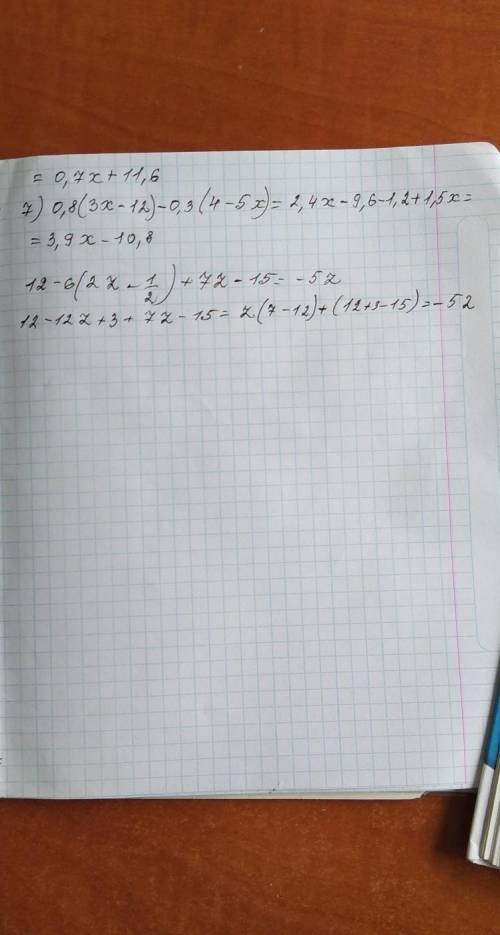 = 0,7x + 11,6
7) 0,8(3x - 12) - 0,3(4 - 5x) = 2,4x - 9,6 - 1,2 + 1,5x =
= 3,9x - 10,8
12 - 6(2z - 1/2) + 7z - 15 = -5z
12 - 12z + 3 + 7z - 15 = z(7 - 12) + (12 + 3 - 15) = -5z